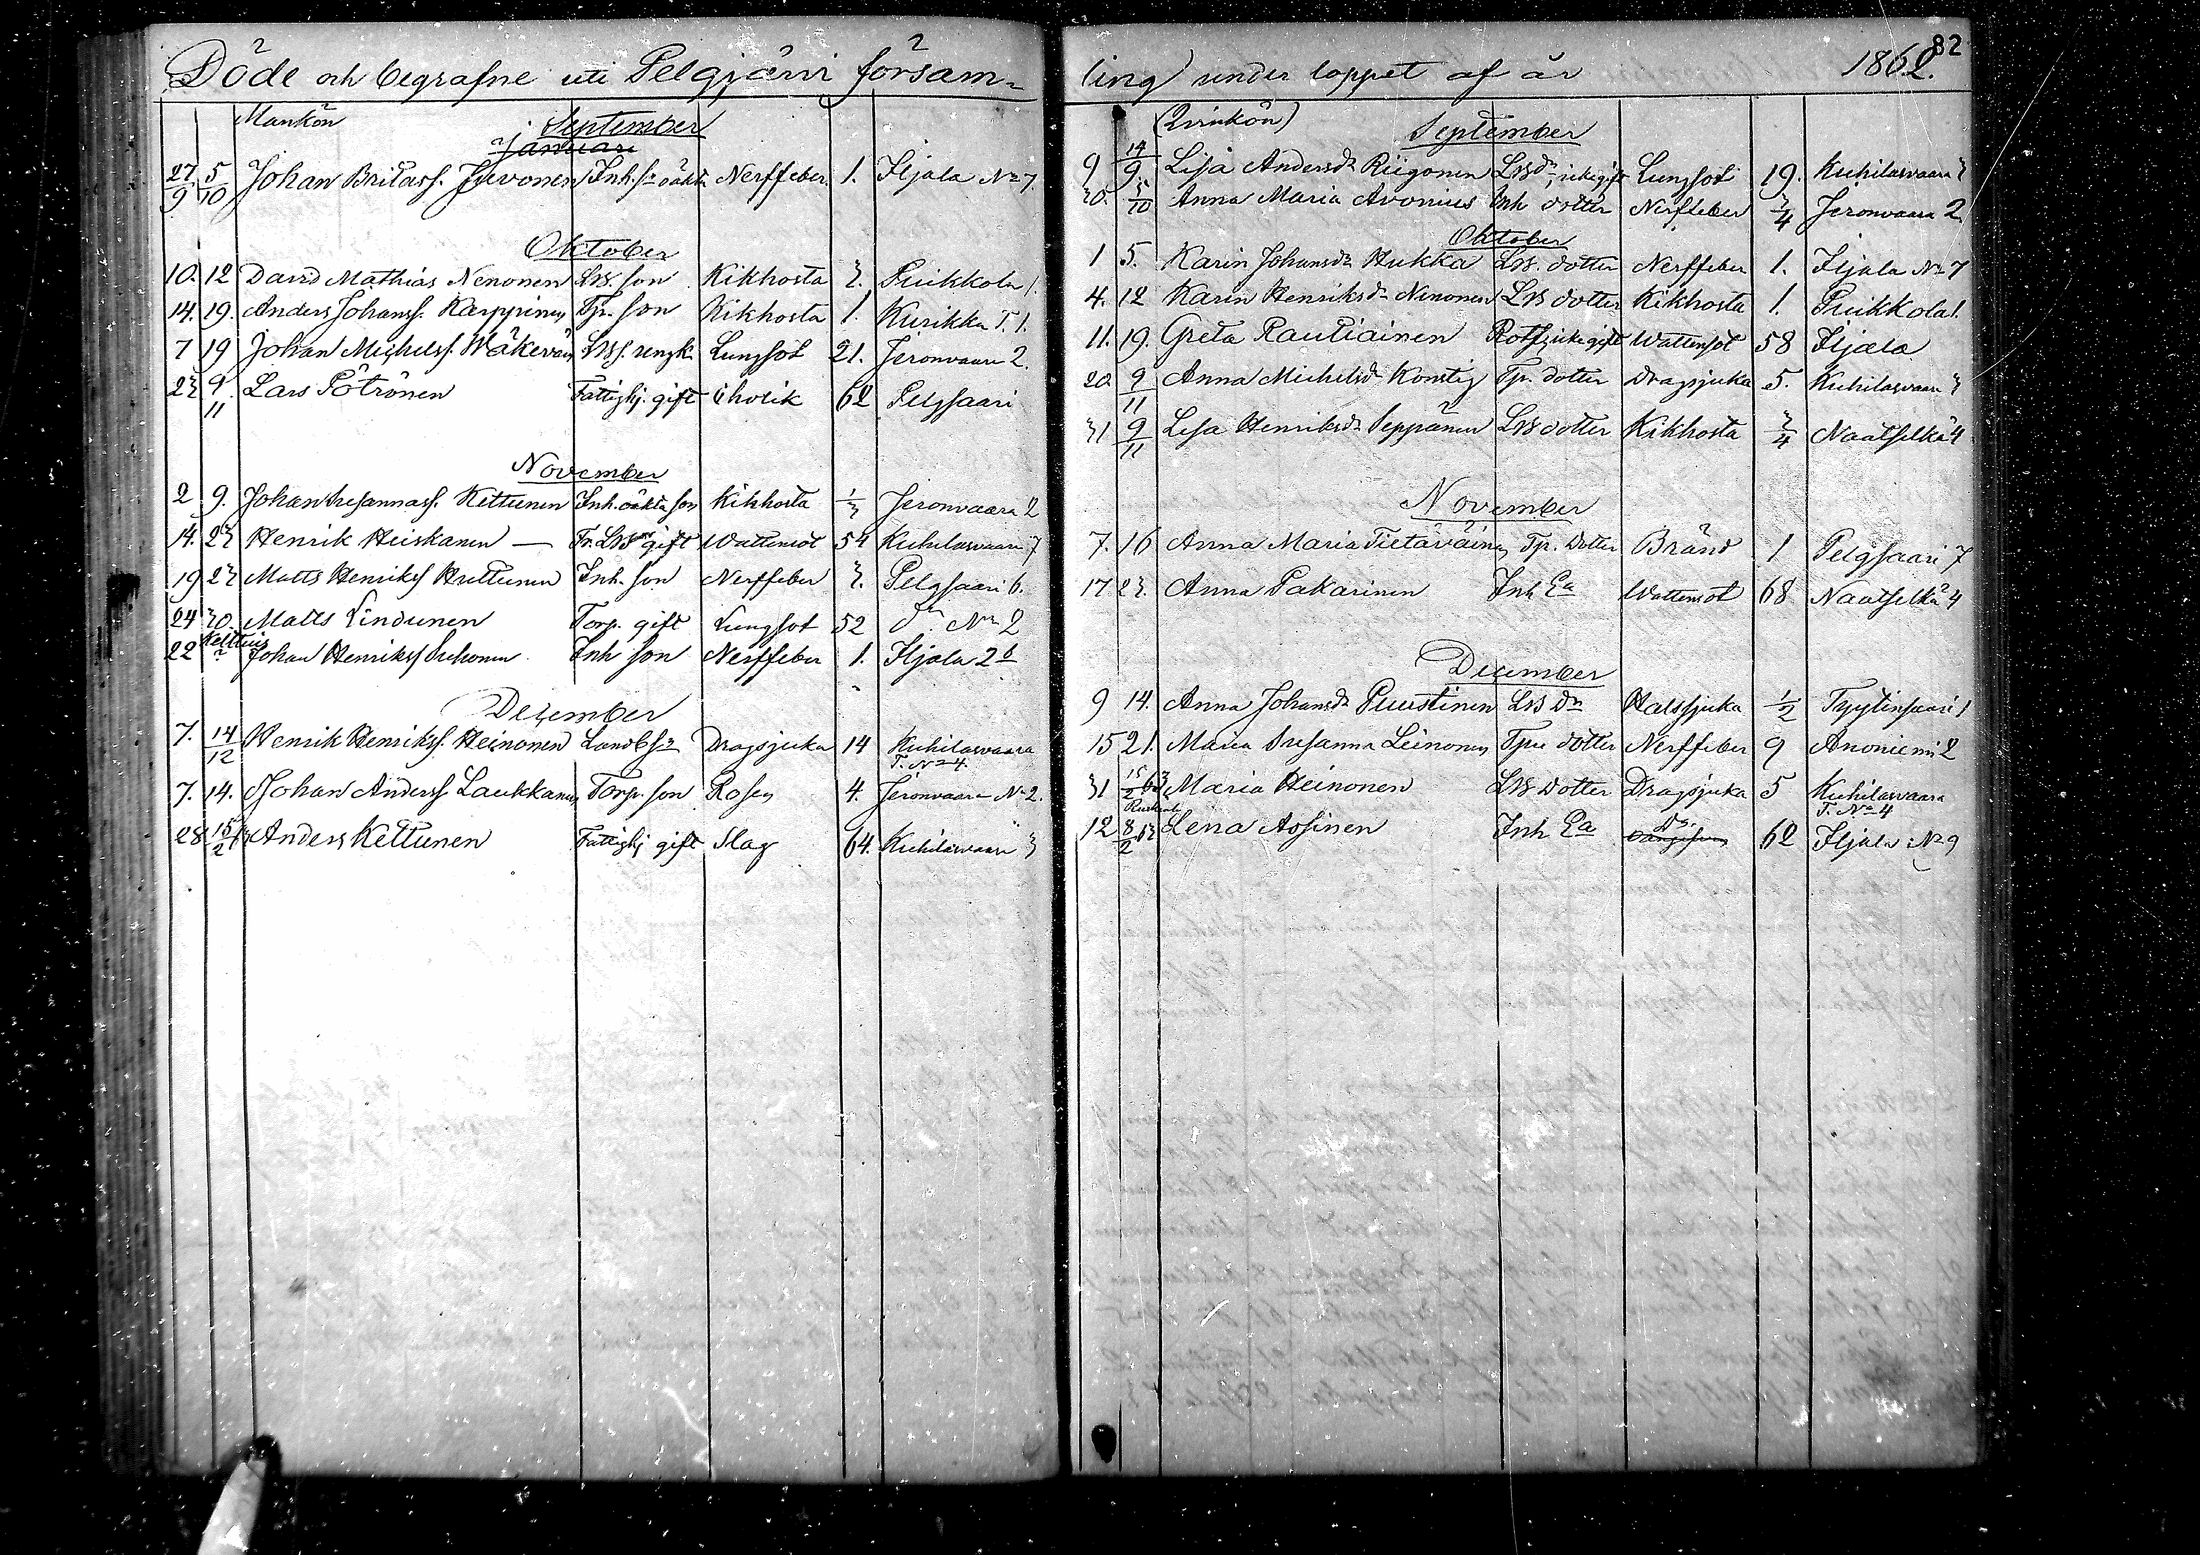 Döde och begrafne uti Pelgjärvi försam-
Mankön
September
Januari
27/9 5/10 Johan Britass. Inh. sn oäkta Nerffeber. 1. Iljala No 7
Oktober
10. 12 David Mathias Nenonen LB. son Kikhosta 3. Puikkola 1.
14. 19. Anders Johanss. Karppinen Tp. son Kikhosta 1. Kurikka T. 1.
7 19 Johan Michelss. Wäkeväi Lungsot 21. Jeronvaara 2.
23 9/11 Lars Pötrönen Fattighj. gift cholik 62 Pelgsaari
November
2 9. Johan Susannass. Kettunen Inh. oäkta son Kikhosta 1/3 Jeronvaara 2
14. 23 Henrik Heiskanen — gift Wattensot 54 Kuhilasvaara 7
19 23 Matts Henrikss Huttunen Inh. son Nerffeber 3. Pelgsaari 6.
24 30. Matts Lindunen Torp. gift Lungsot 52 No 2
22 Johan Henrikss Inh son Nerffeber 1. Iljala 2
December
7. 14/12 Henrik Henrikss. Heinonen Landb sn Dragsjuka 14 Kuhilasvaara
T. No 4.
7. 14. Johan Anderss Laukkanen Torp. son Rosen 4. Jeronvaara No 2.
28 15/2 63 Anders Kettunen Fattighj gift Slag 64. Kuhilasvaara 3
82
ling under loppet af år 1862.
(Qvinkön)
September
9 14/9 Lisa Andersdr Riigonen LBdr, icke gift Lungsot 19. Kuhilasvaara 3
30. 5/10 Anna Maria Avonius Inh dotter Nerffeber 3/4 Jeronvaara 2
Oktober
1 5. Karin Johansdr Hukka LB. dotter Nerffeber 1. Iljala No 7
4. 12 Karin Henriksdr Nenonen LB dotter Kikhosta 1 Puikkola 1.
11. 19. Greta Rautiainen Wattensot 58 Iljala
20 9/11 Anna Michelsdr Konstig Tp. dotter Dragsjuka 5. Kuhilasvaara 3
31 9/11 Lisa Henriksdr Seppänen LB dotter Kikhosta 3/4 Naatselkä 4
November
7. 16 Anna Maria Tietäväinen Tp. Dotter Bränd 1 Pelgsaari 7
17 23. Anna Pakarinen Inh Ea Wattensot 68 Naatselkä 4
December
9 14. Anna Johansdr Puustinen LB Dr Halssjuka 1/2 1
15 21. Maria Susanna Leinonen dotter Nerffeber 9 Anoniemi 2
31 15/2 63 Maria Heinonen LB dotter Dragsjuka 5 Kuhilasvaara
T. No 4
12 8/2 63 Lena Assinen Inh Ea Do. 62 Iljala No 9